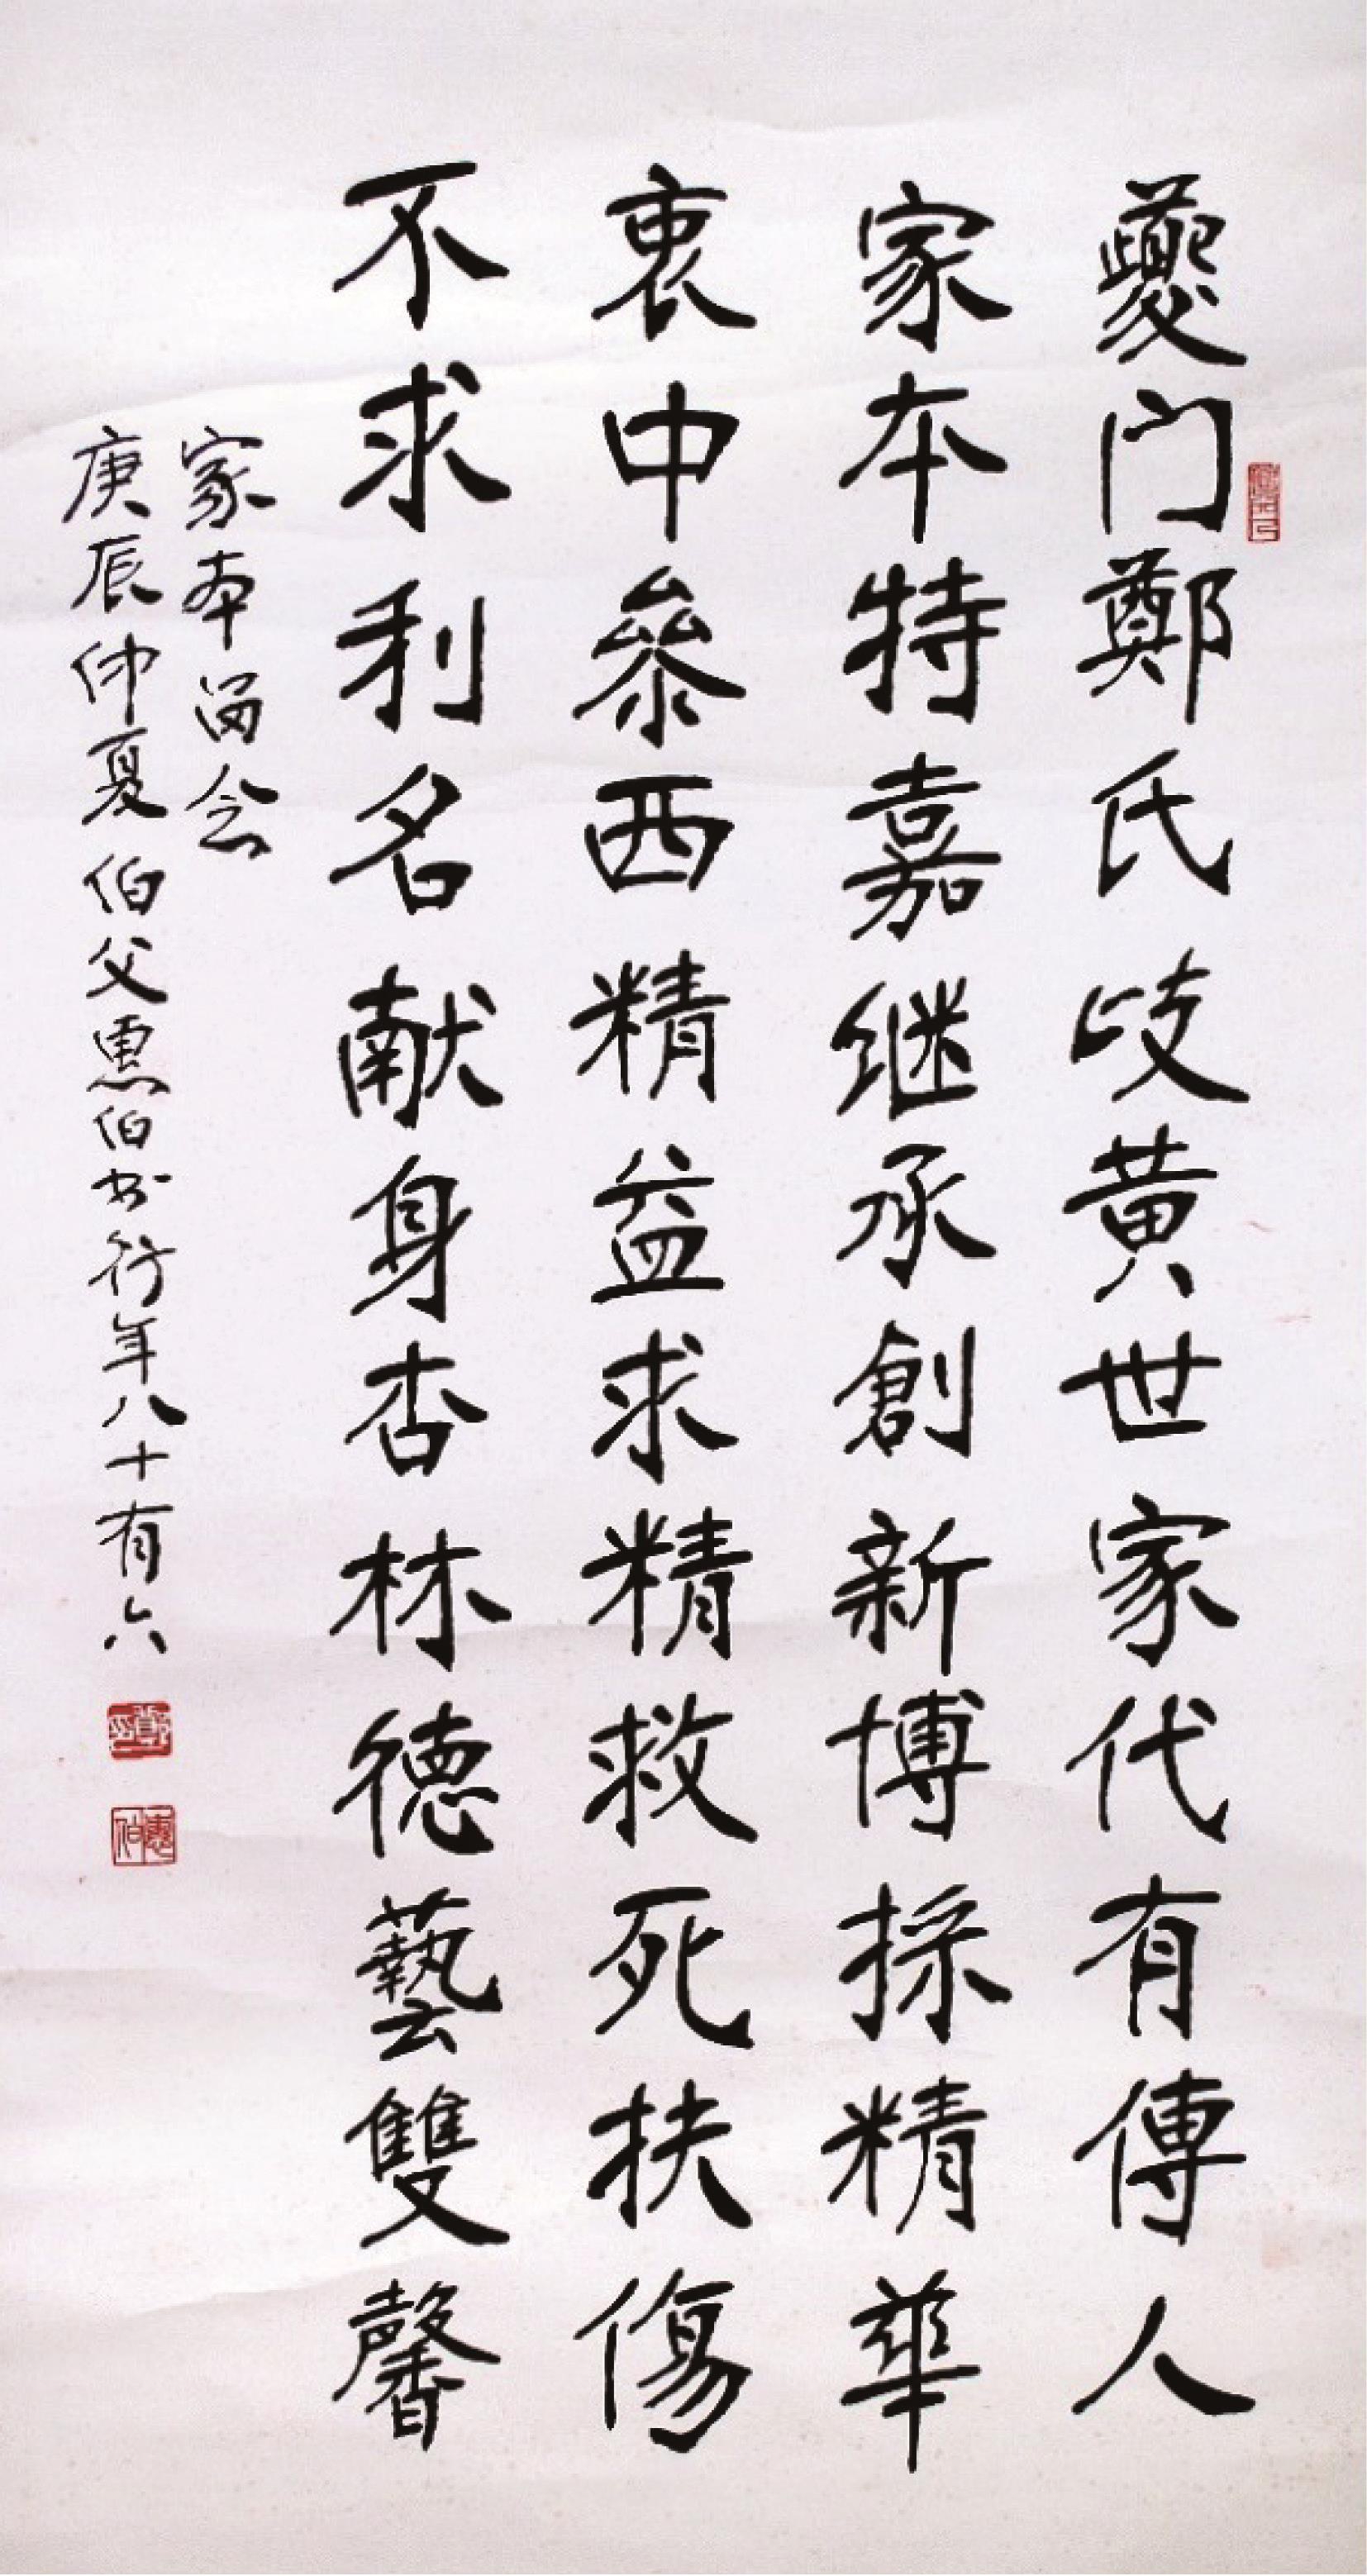 夔门鄭氏歧黄世家代有傳人
家本特嘉继承創新博採精華
衷中參西精益求精救死扶傷
不求利名献身杏林德藝雙馨
家本留念
庚辰仲夏伯父惠伯书行年八十有六
鄭印
惠伯